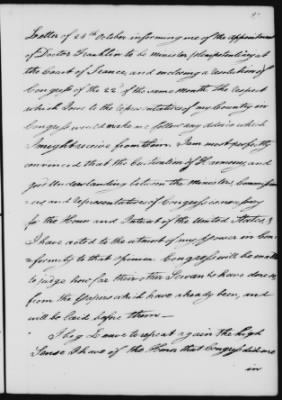 Letter of 28th October informing me of the appointment
of Doctor Franklin to be minister plenipotentiary at
the Court of France, and inclosing a Resolution of
Congress of the 22d of the same month. The respect
which I owe to the representatives of my Country in
Congress would make me follow any advice which
I might receive from them. I am most perfectly
convinced that the Cultivation of Harmony, and
good Understanding between the Ministers, Commissio
ners and Representatives of Congress is necessary
for the Honor and Interest of the United States, &
I have acted to the utmost of my Power in Con-
formity to that opinion. Congress will be enabled
to judge how far their other Servants have done so
from the Papers which have already been, and
will be laid before them —
I beg Leave to repeat again the high
Sense I have of the Honor that Congress did me
in